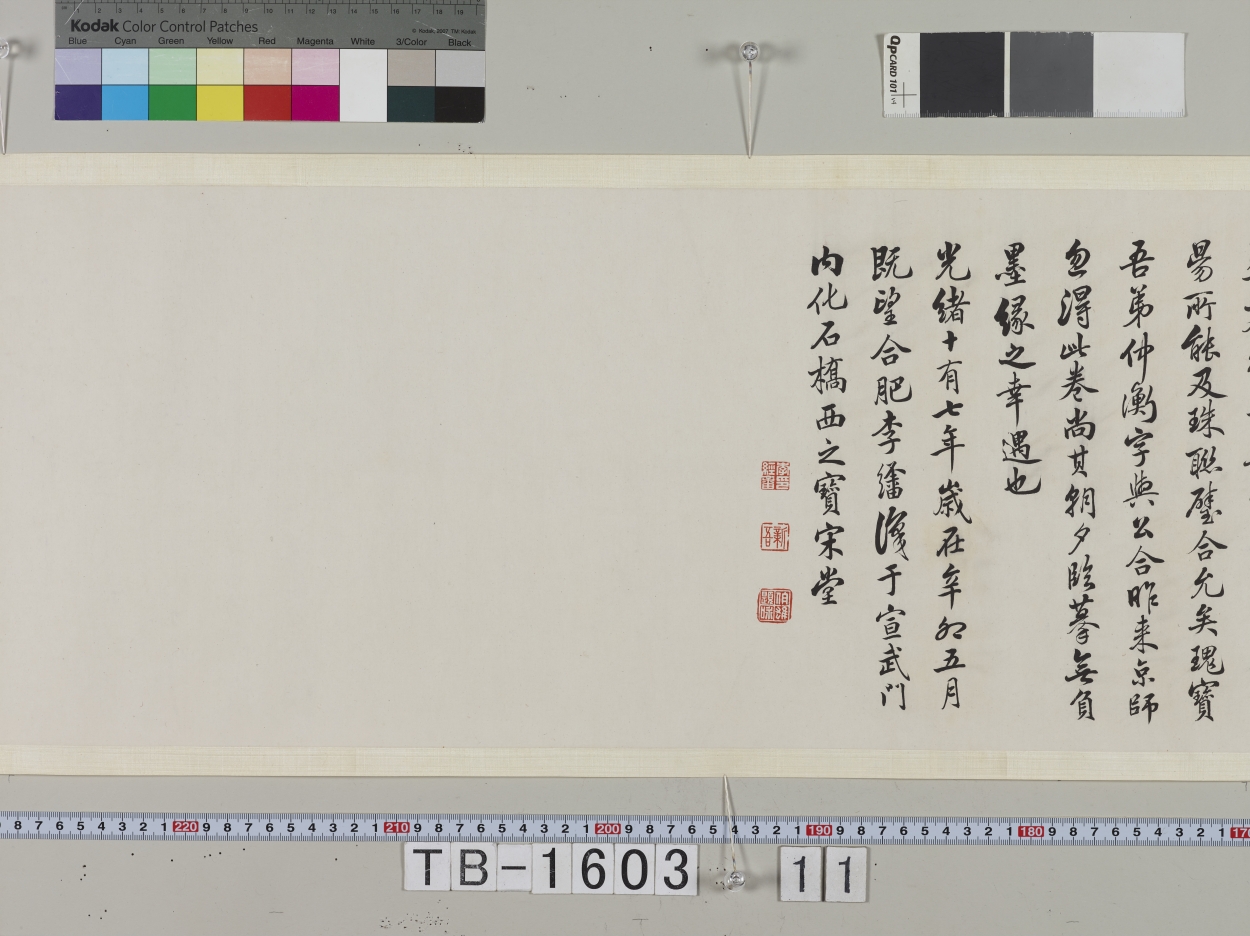 Kodak Color Control Patches
© Kodak, 2007 TM: Kodak
Blue Cyan Green Yellow Red Magenta White 3/Color Black
QPCARD 101
昜所能及珠聯璧合允矣瑰寶
吾弟仲衡字與公合昨来京師
忽得此卷尚其朝夕臨摹無負
墨緣之幸遇也
光緒十有七年歲在辛卯五月
既望合肥李于宣武門
内化石橋西之寶宋堂
8 7 6 5 4 3 2 1 220 9 8 7 6 5 4 3 2 1 210 9 8 7 6 5 4 3 2 1 200 9 8 7 6 5 4 3 2 1 190 9 8 7 6 5 4 3 2 1 180 9 8 7 6 5 4 3 2 1 170
TB-1603 11